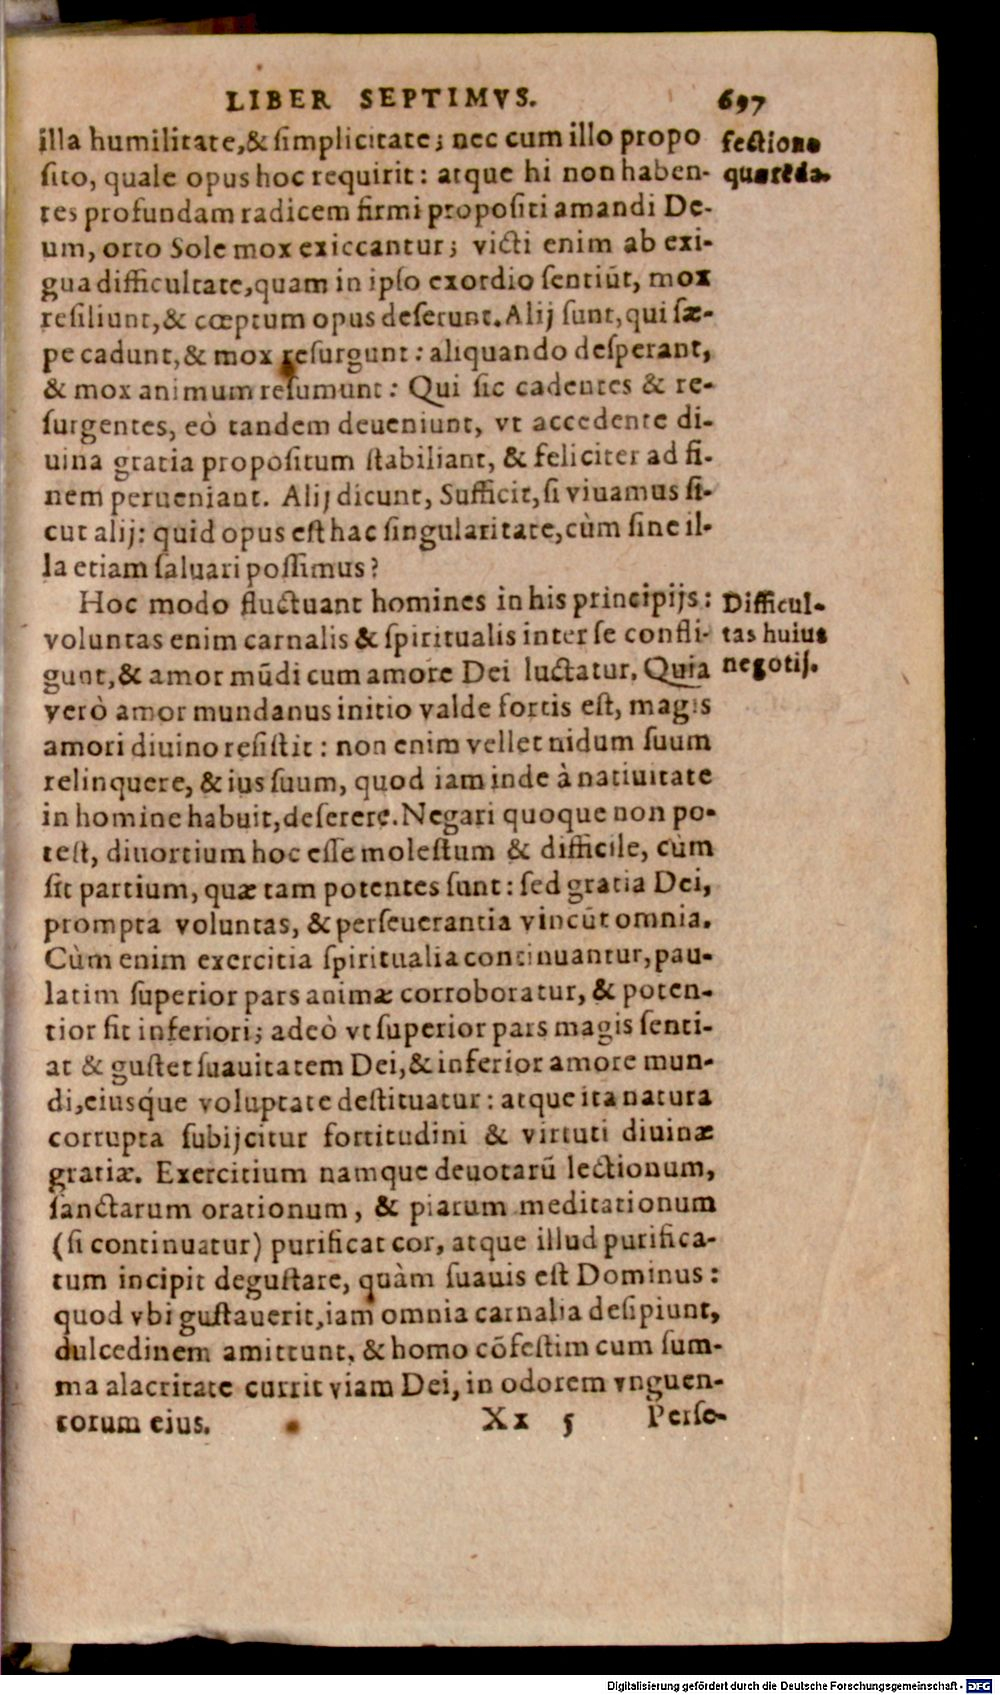 LIBER SEPTIMVS. 697
illa humilitate,& simplicitate; nec cum illo propo
sito, quale opus hoc requirit: atque hi non haben-
tes profundam radicem firmi propositi amandi De-
um, orto Sole mox exiccantur; victi enim ab exi-
gua difficultate,quam in ipso exordio sentiũt, mox
resiliunt,& cœptum opus deserunt. Alij sunt,qui sæ-
pe cadunt,& mox resurgunt: aliquando desperant,
& mox animum resumunt: Qui sic cadentes & re-
surgentes, eò tandem deueniunt, vt accedente di-
uina gratia propositum stabiliant, & feliciter ad fi-
nem perueniant. Alij dicunt, Sufficit,si viuamus si-
cut alij: quid opus est hac singularitate,cùm sine il-
la etiam saluari possimus?
Hoc modo fluctuant homines in his principijs:
voluntas enim carnalis & spiritualis inter se confli-
gunt,& amor mũdi cum amore Dei luctatur, Quia
verò amor mundanus initio valde fortis est, magis
amori diuino resistit: non enim vellet nidum suum
relinquere, & ius suum, quod iam inde à natiuitate
in homine habuit,deserere. Negari quoque non po-
test, diuortium hoc esse molestum & difficile, cùm
sit partium, quæ tam potentes sunt: sed gratia Dei,
prompta voluntas, & perseuerantia vincũt omnia.
Cùm enim exercitia spiritualia continuantur,pau-
latim superior pars animæ corroboratur, & poten-
tior fit inferiori; adeò vt superior pars magis senti-
at & gustet suauitatem Dei,& inferior amore mun-
di,eiusq́ue voluptate destituatur: atque ita natura
corrupta subijcitur fortitudini & virtuti diuinæ
gratiæ. Exercitium namque deuotarũ lectionum,
sanctarum orationum, & piarum meditationum
(si continuatur) purificat cor, atque illud purifica-
tum incipit degustare, quàm suauis est Dominus:
quod vbi gustauerit,iam omnia carnalia desipiunt,
dulcedinem amittunt, & homo cõfestim cum sum-
ma alacritate currit viam Dei, in odorem vnguen-
torum eius.
Xx 5 Perse-
fectione
quaerēda.
Difficul-
tas huius
negotij.
Digitalisierung gefördert durch die Deutsche Forschungsgemeinschaft - DFG